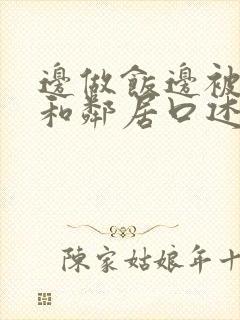 邊做飯邊被
和鄰居口述
陳家姑娘年十